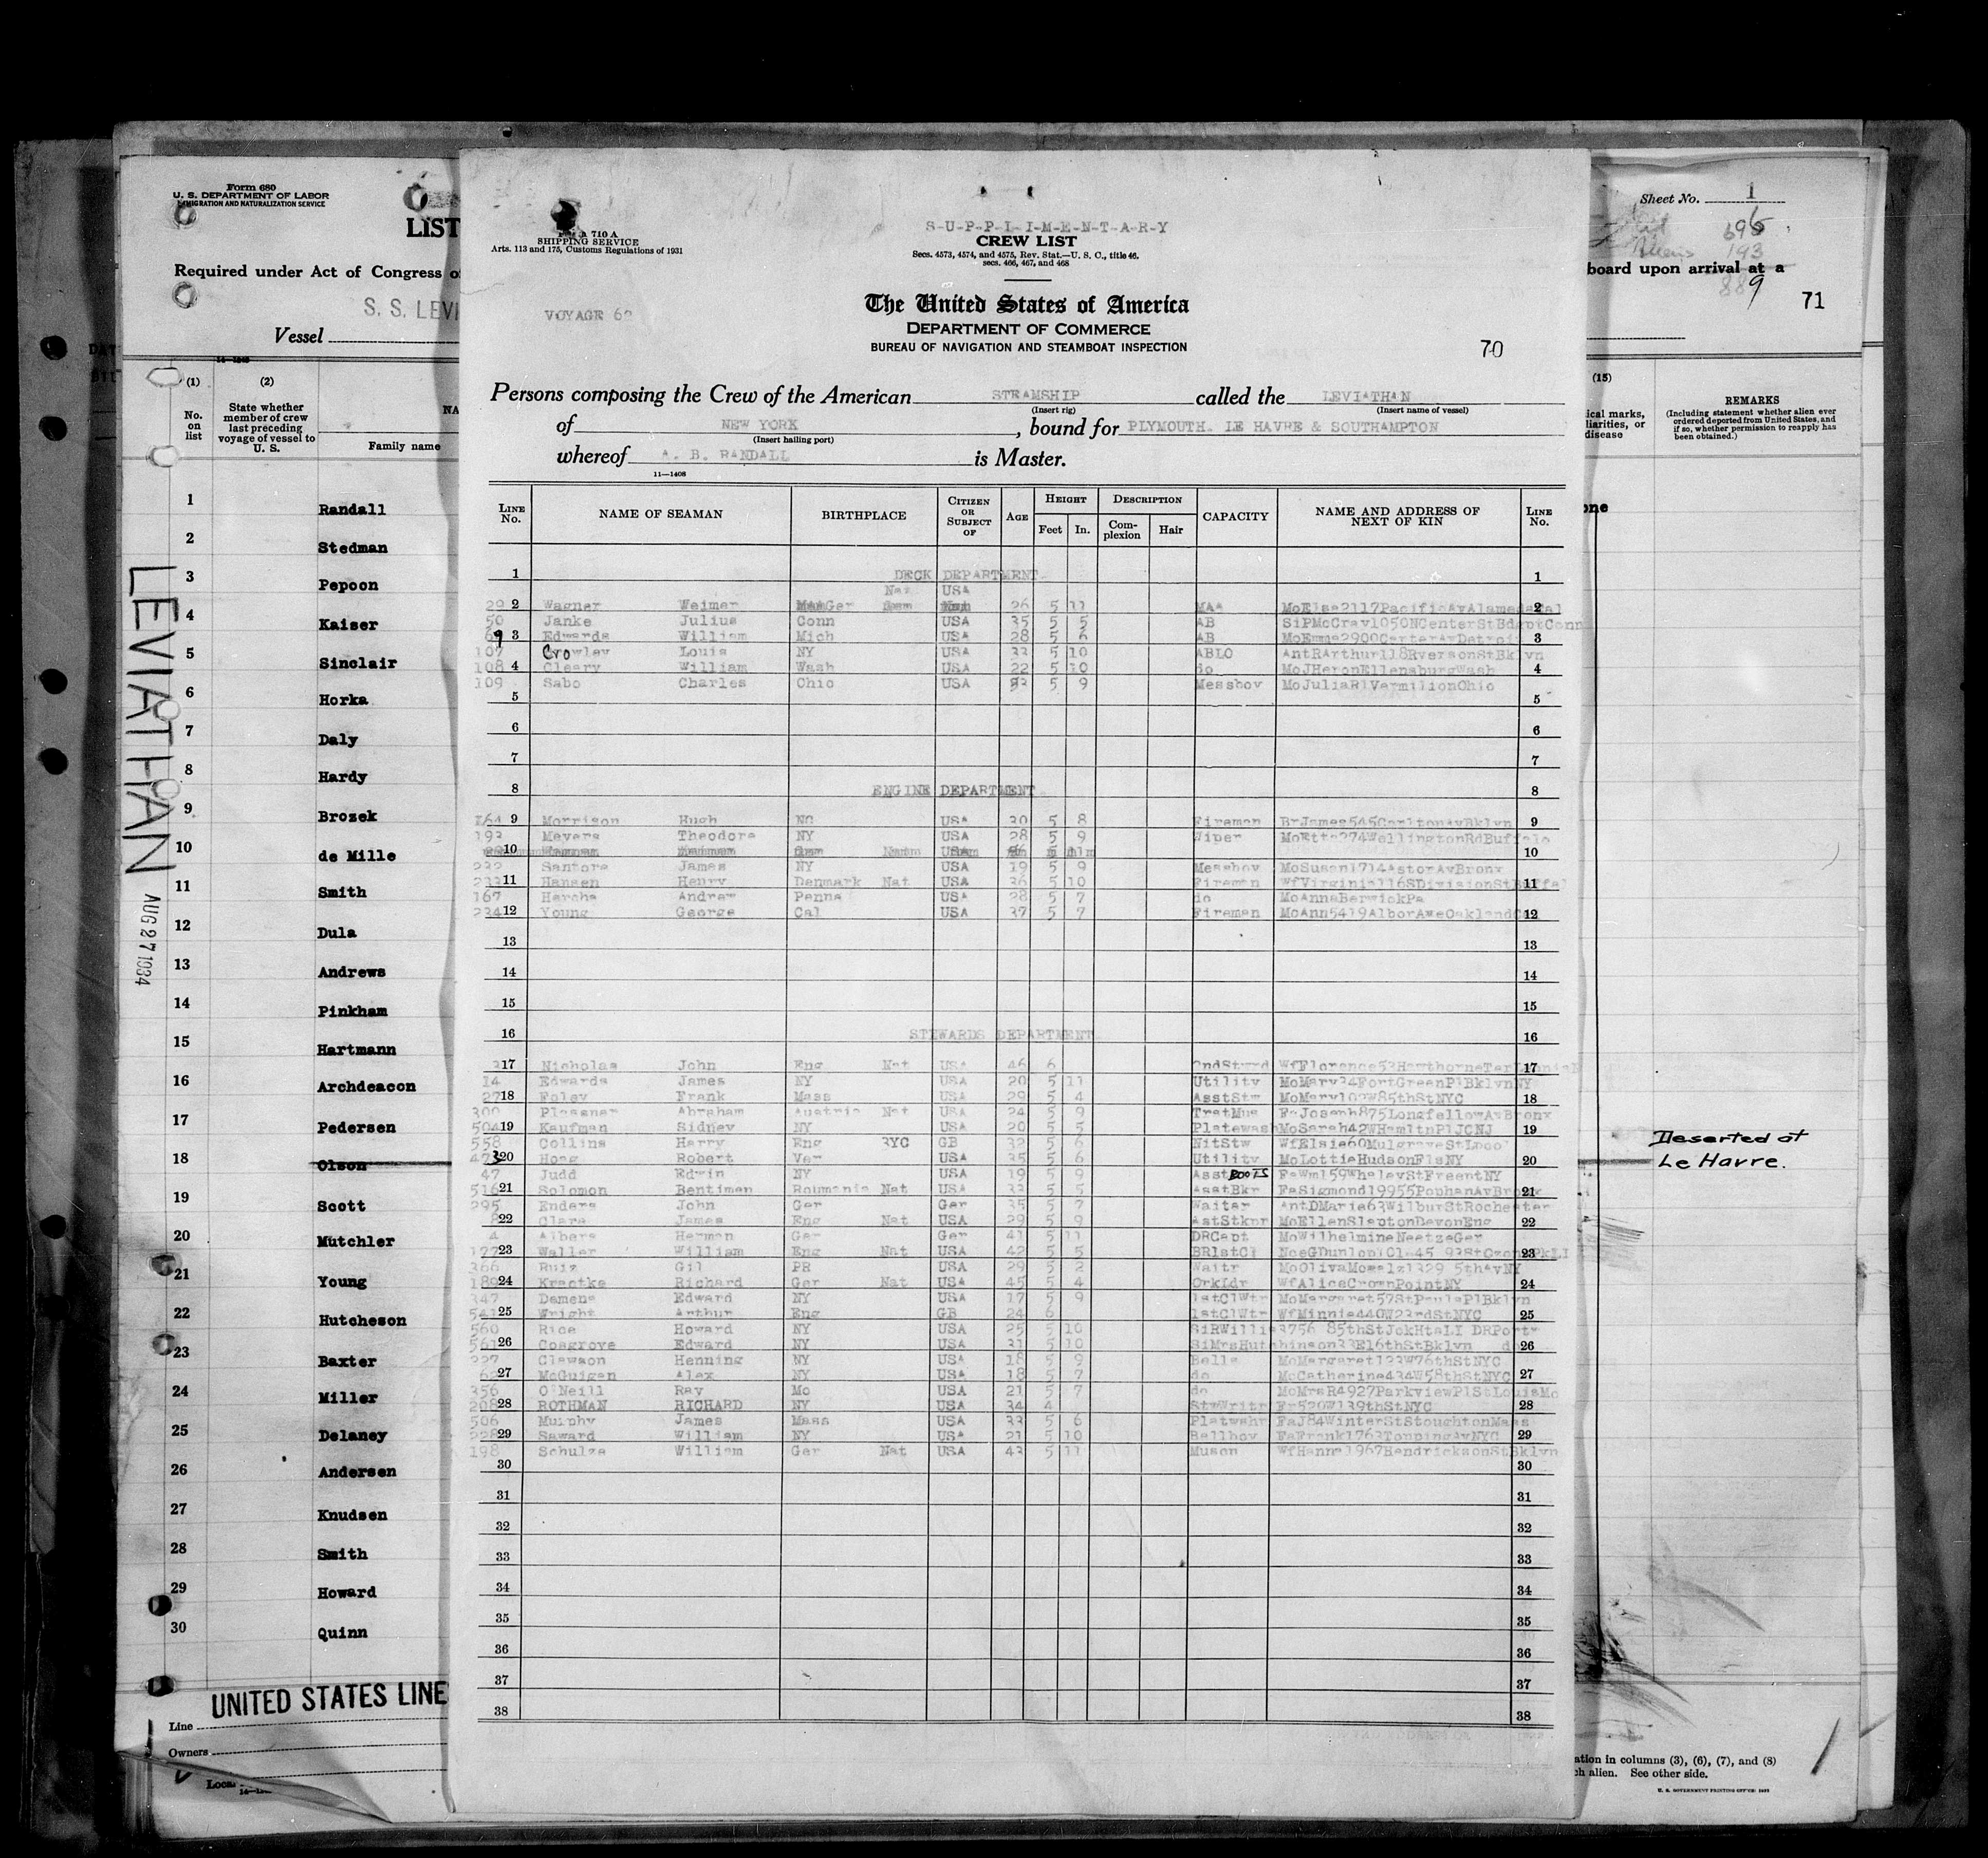 Form 680
U. S. DEPARTMENT OF LABOR
IMMIGRATION AND NATURALIZATION SERVICE
LIST
Required under Act of Congress
S. S. LEVI
Vessel
(1) (2)
No. on list
State whether member of crew last preceding voyage of vessel to U. S.
NA
Family name
1 Randall
2 Stedman
3 Pepoon
4 Kaiser
5 Sinclair
6 Horka
7 Daly
8 Hardy
9 Brozek
10 de Mille
11 Smith
12 Dula
13 Andrews
14 Pinkham
15 Hartmann
16 Archdeacon
17 Pedersen
18 Olson
19 Scott
20 Mutchler
21 Young
22 Hutcheson
23 Baxter
24 Miller
25 Delaney
26 Andersen
27 Knudsen
28 Smith
29 Howard
30 Quinn
LEVIATHAN
AUG 27 1934
UNITED STATES LINE
Line
Owners
Loca
710 A
SHIPPING SERVICE
Arts. 113 and 175, Customs Regulations of 1931
S-U-P-P-L-I-M-E-N-T-A-R-Y
CREW LIST
Secs. 4573, 4574, and 4575, Rev. Stat.—U. S. C., title 46,
secs. 466, 467, and 468
The United States of America
VOYAGE 62
DEPARTMENT OF COMMERCE
BUREAU OF NAVIGATION AND STEAMBOAT INSPECTION
70
Persons composing the Crew of the American STEAMSHIP called the LEVIATHAN
(Insert rig) (Insert name of vessel)
of NEW YORK, bound for PLYMOUTH. LE HAVRE & SOUTHAMPTON
(Insert hailing port)
whereof A. B. RANDALL is Master.
11—1408
LINE No. NAME OF SEAMAN BIRTHPLACE CITIZEN OR SUBJECT OF AGE HEIGHT Feet In. DESCRIPTION Complexion Hair CAPACITY NAME AND ADDRESS OF NEXT OF KIN LINE No.
1 DECK DEPARTMENT. 1
Nat USA
29 2 Wagner Weimer Ger 26 5 11 MAA MoElsa2117PacificAvAlamedaCal 2
50 Janke Julius Conn USA 35 5 5 AB SiPMcCray1050NCenterStBdgptConn
3 Edwards William Mich USA 28 5 6 AB MoEmma2900CenterAvDetroit 3
107 Crowley Louis NY USA 33 5 10 ABLO AntRArthur118RyersonStBklyn
108 4 Cleary William Wash USA 22 5 10 do MoJHeronEllensburgWash 4
109 Sabo Charles Ohio USA 5 9 Messboy MoJuliaR1VermilionOhio
5 5
6 6
7 7
8 ENGINE DEPARTMENT. 8
164 9 Morrison Hugh NC USA 30 5 8 Fireman BrJames545CarltonAvBklyn 9
193 Meyers Theodore NY USA 28 5 9 Wiper MoEtta274WellingtonRdBuffalo
10 10
232 Santore James NY USA 19 5 9 Messboy MoSusan1714AstorAvBronx
233 11 Hansen Henry Denmark Nat USA 36 5 10 Fireman WfVirginia116SDivisionStBuffal 11
167 Harcha Andrew Penna USA 28 5 7 do MoAnnaBerwickPa
234 12 Young George Cal USA 37 5 7 Fireman MoAnn5419AlborAveOaklandCa 12
13 13
14 14
15 15
16 STEWARDS DEPARTMENT. 16
17 Nicholas John Eng Nat USA 46 6 2ndStwrd WfFlorence53HawthorneTer 17
14 Edwards James NY USA 20 5 11 Utility MoMary34FortGreenPlBklynNY
27 18 Foley Frank Mass USA 29 5 4 AsstStw MoMary102W85thStNYC 18
300 Plessner Abraham Austria Nat USA 24 5 9 TrstMus FaJoseph875LongfellowAvBronx
504 19 Kaufman Sidney NY USA 20 5 5 Platewash MoSarah42WHamltnPlJCNJ 19
558 Collins Harry Eng 3YC GB 32 5 6 NitStw WfElsie60MulgraveStLpool
20 Hong Robert Ver USA 35 5 6 Utility MoLottieHudsonFlsNY 20
47 Judd Edwin NY USA 19 5 9 Asst BOOTS FaWm159WhaleyStFreeptNY
516 21 Solomon Bentimen Roumania Nat USA 33 5 5 AsstBkr FaSigmond19955PophanAvBronx 21
295 Enders John Ger Ger 35 5 7 Waiter AntDMaria63WilburStRochester
22 Clare James Eng Nat USA 29 5 9 AstStkpr MoEllenSlaptonDevonEng 22
4 Albers Herman Ger Ger 41 5 11 DRCapt MoWilhelmineNeetzeGer
177 23 Waller William Eng Nat USA 42 5 5 BR1stCl 23
366 Ruiz Gil PR USA 29 5 2 Waitr 1329 5thAvNY
189 24 Kraetke Richard Ger Nat USA 45 5 4 OrkLdr WfAliceCrownPointNY 24
347 Demens Edward NY USA 17 5 9 1stClWtr MoMargaret57StPaulsPlBklyn
541 25 Wright Arthur Eng GB 24 6 1stClWtr WfMinnie440W23rdStNYC 25
560 Rice Howard NY USA 25 5 10 SiRWillis3756 85thStJckHtsLI DRPortr
561 26 Cosgrove Edward NY USA 31 5 10 SiMrsHutchinson33E16thStBklyn d 26
227 Clawson Henning NY USA 18 5 9 Bells MoMargaret123W76thStNYC
62 27 McGuigan Alex NY USA 18 5 7 do McCatherine434W58thStNYC 27
356 O'Neill Ray Mo USA 21 5 7 do McMrsR4927ParkviewPlStLouisMo
208 28 ROTHMAN RICHARD NY USA 34 4 StwWritr Fr520W139thStNYC 28
506 Murphy James Mass USA 33 5 6 Platwshr FaJ84WinterStStoughtonMass
228 29 Saward William NY USA 21 5 10 Bellboy FaFrank1763ToppingAvNYC 29
198 Schulze William Ger Nat USA 43 5 11 Muscn WfHanna1967HendricksonStBklyn
30 30
31 31
32 32
33 33
34 34
35 35
36 36
37 37
38 38
Sheet No. 1
193
board upon arrival at a
9
71
(15)
ical marks,
liarities, or
disease
REMARKS
(Including statement whether alien ever ordered deported from United States, and if so, whether permission to reapply has been obtained.)
one
Deserted at
Le Havre.
ation in columns (3), (6), (7), and (8)
ch alien. See other side.
U. S. GOVERNMENT PRINTING OFFICE